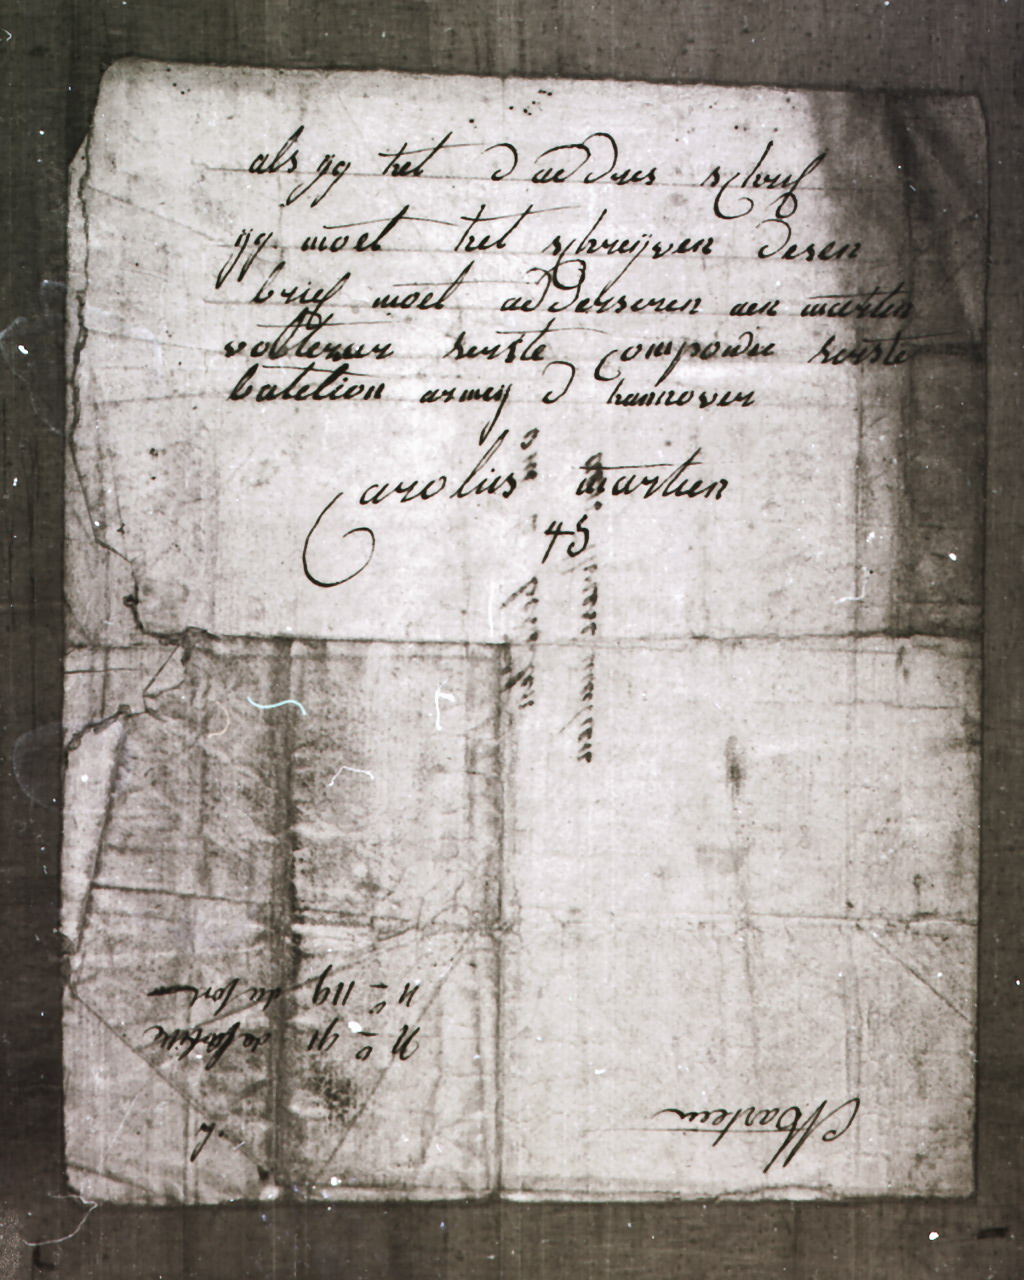 als gy het d ad dres schrif
gy moet het schreijven desen
brief moet adderseren aen martin
voltezuer serste compondie serste
batelion armey d hannover
Carolus martien
45
Martein